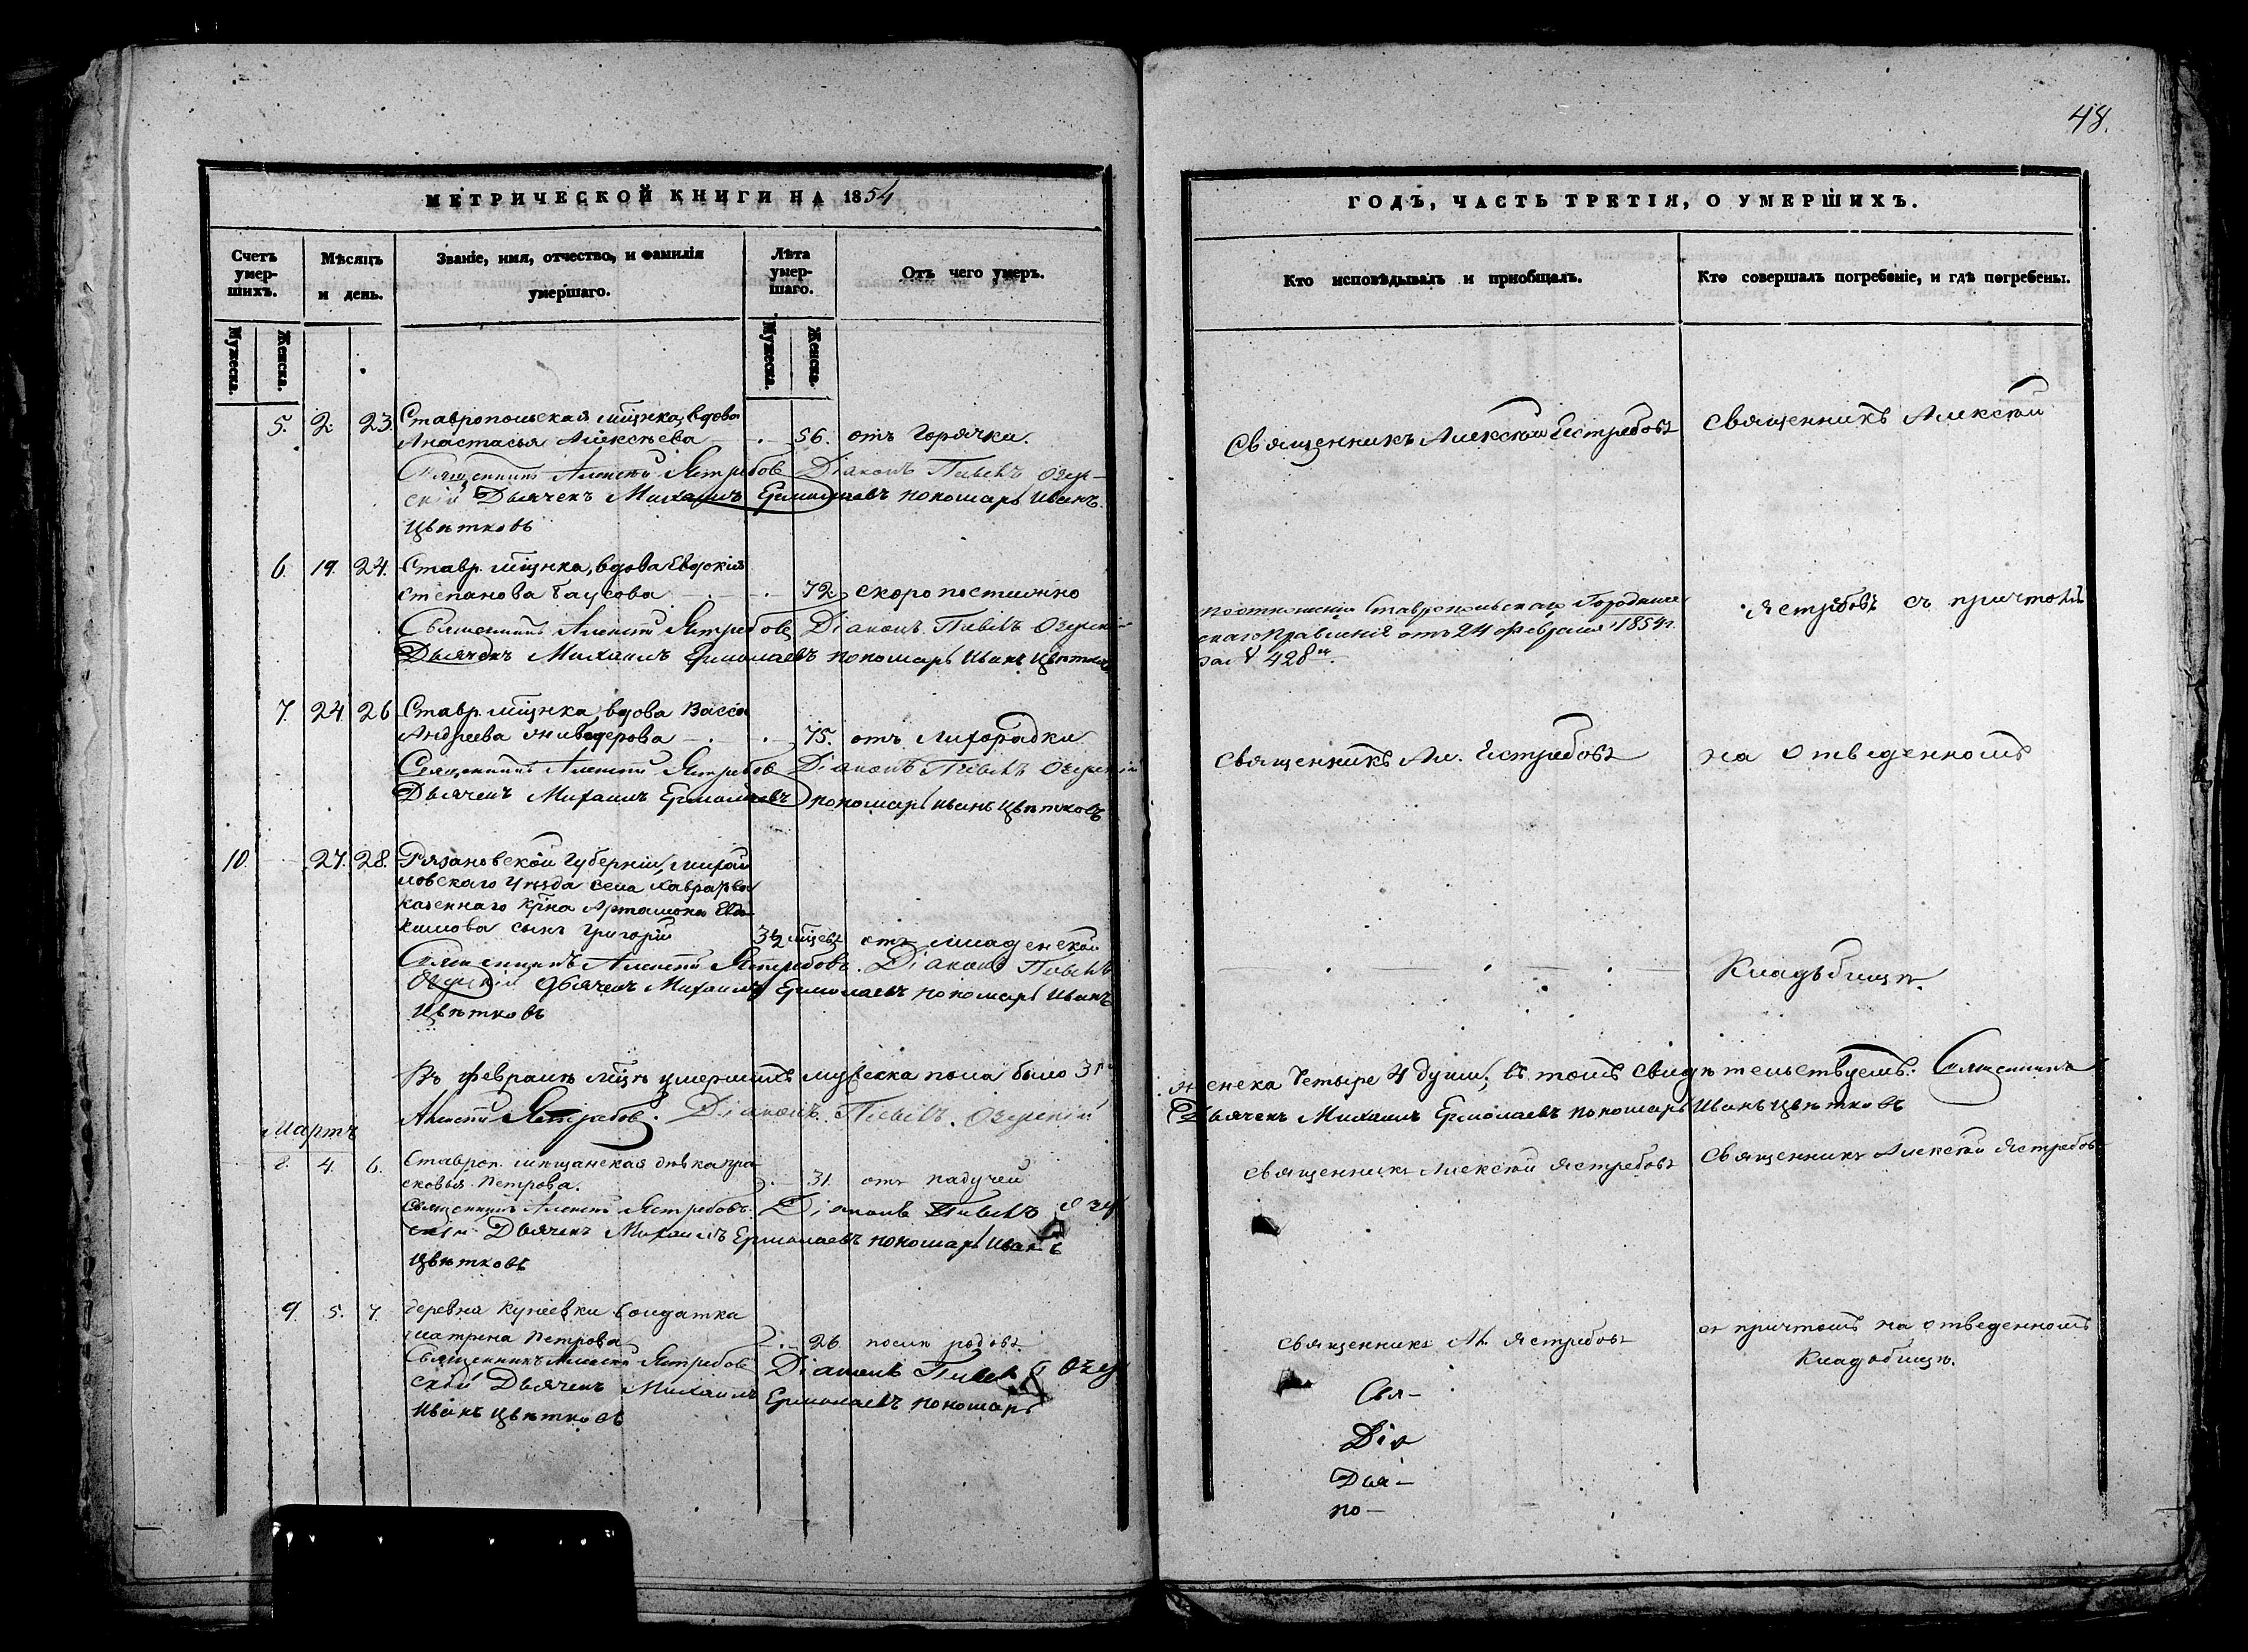 48.
МЕТРИЧЕСКОЙ КНИГИ НА 1854
Счетъ умер- шихъ.
Мужеска.
Женска.
Мѣсяцъ и день.
Званіе, имя, отчество, и фамилія умершаго.
Лѣта умер- шаго.
Мужеска.
Женска.
Отъ чего умеръ.
5. 2. 23. Ставропольская мщнка, вдова
Анастасья Алексѣева 56. отъ горячки.
Священникъ Алексѣй Ястребовъ Діаконъ Павелъ Озер-
скій Дьячекъ Михаилъ Ермолаевъ пономарь Иванъ
Цвѣтковъ
6. 19. 24. Ставр. мщнка, вдова Евдокія
Степанова 72 скоропостижно
Священникъ Алексѣй Ястребовъ Діаконъ Павелъ Озерскій
Дьячекъ Михаилъ Ермолаевъ пономарь Иванъ Цвѣтковъ
7. 24 26 Ставр. мщнка, вдова Васса
Андреева Живодерова 75. отъ лихорадки
Священникъ Алексѣй Ястребовъ Діаконъ Павелъ Озерскій
Дьячекъ Михаилъ Ермолаевъ пономарь Иванъ Цвѣтковъ
10. 27. 28. Рязановской губерніи, михай
ловскаго уѣзда села
казеннаго крна Артамона Евдо
кимова сынъ Григорій 3½ мцевъ отъ младенской
Священникъ Алексѣй Ястребовъ. Діаконъ Павелъ
Озерскій Дьячекъ Михаилъ Ермолаевъ пономарь Иванъ
Цвѣтковъ
Въ февралѣ мцѣ умершихъ мужеска пола было 3
Алексѣй Ястребовъ. Діаконъ Павелъ Озерскій
Мартъ
8. 4. 6. Ставроп. мещанская дѣвка пра
сковья Петрова. 31. отъ падучей
Священникъ Алексѣй Ястребовъ. Діаконъ Павелъ Озер
скій Дьячекъ Михаилъ Ермолаевъ пономарь Иванъ
Цвѣтковъ
9. 5. 7. деревни Кунеевки солдатка
матрена Петрова 26 послѣ родовъ
Священникъ Алексѣй Ястребовъ Діаконъ Павелъ Озер
скій Дьячекъ Михаилъ Ермолаевъ пономарь
Иванъ Цвѣтковъ
ГОДЪ, ЧАСТЬ ТРЕТІЯ, О УМЕРШИХЪ.
Кто исповѣдывалъ и приобщалъ.
Кто совершалъ погребеніе, и гдѣ погребены.
Священникъ Алексѣй Естребовъ Священникъ Алексѣй
по отношенію Ставропольскаго Городниче
скаго Правленія отъ 24 февраля 1854 г.
за № 428 м.
Ястребовъ съ причтомъ
Священникъ Ал. Естребовъ на отведенномъ
Кладьбищѣ.
женска Четыре 4 души, въ томъ свидѣтельствуемъ: Священникъ
Дьячекъ Михаилъ Ермолаевъ пономарь Иванъ Цвѣтковъ
Священникъ Алексѣй Ястребовъ Священникъ Алексѣй Ястребовъ
Священникъ Ал. Ястребовъ съ причтомъ на отведенномъ
Кладбищѣ.
Свя-
Діа
Дья-
по-